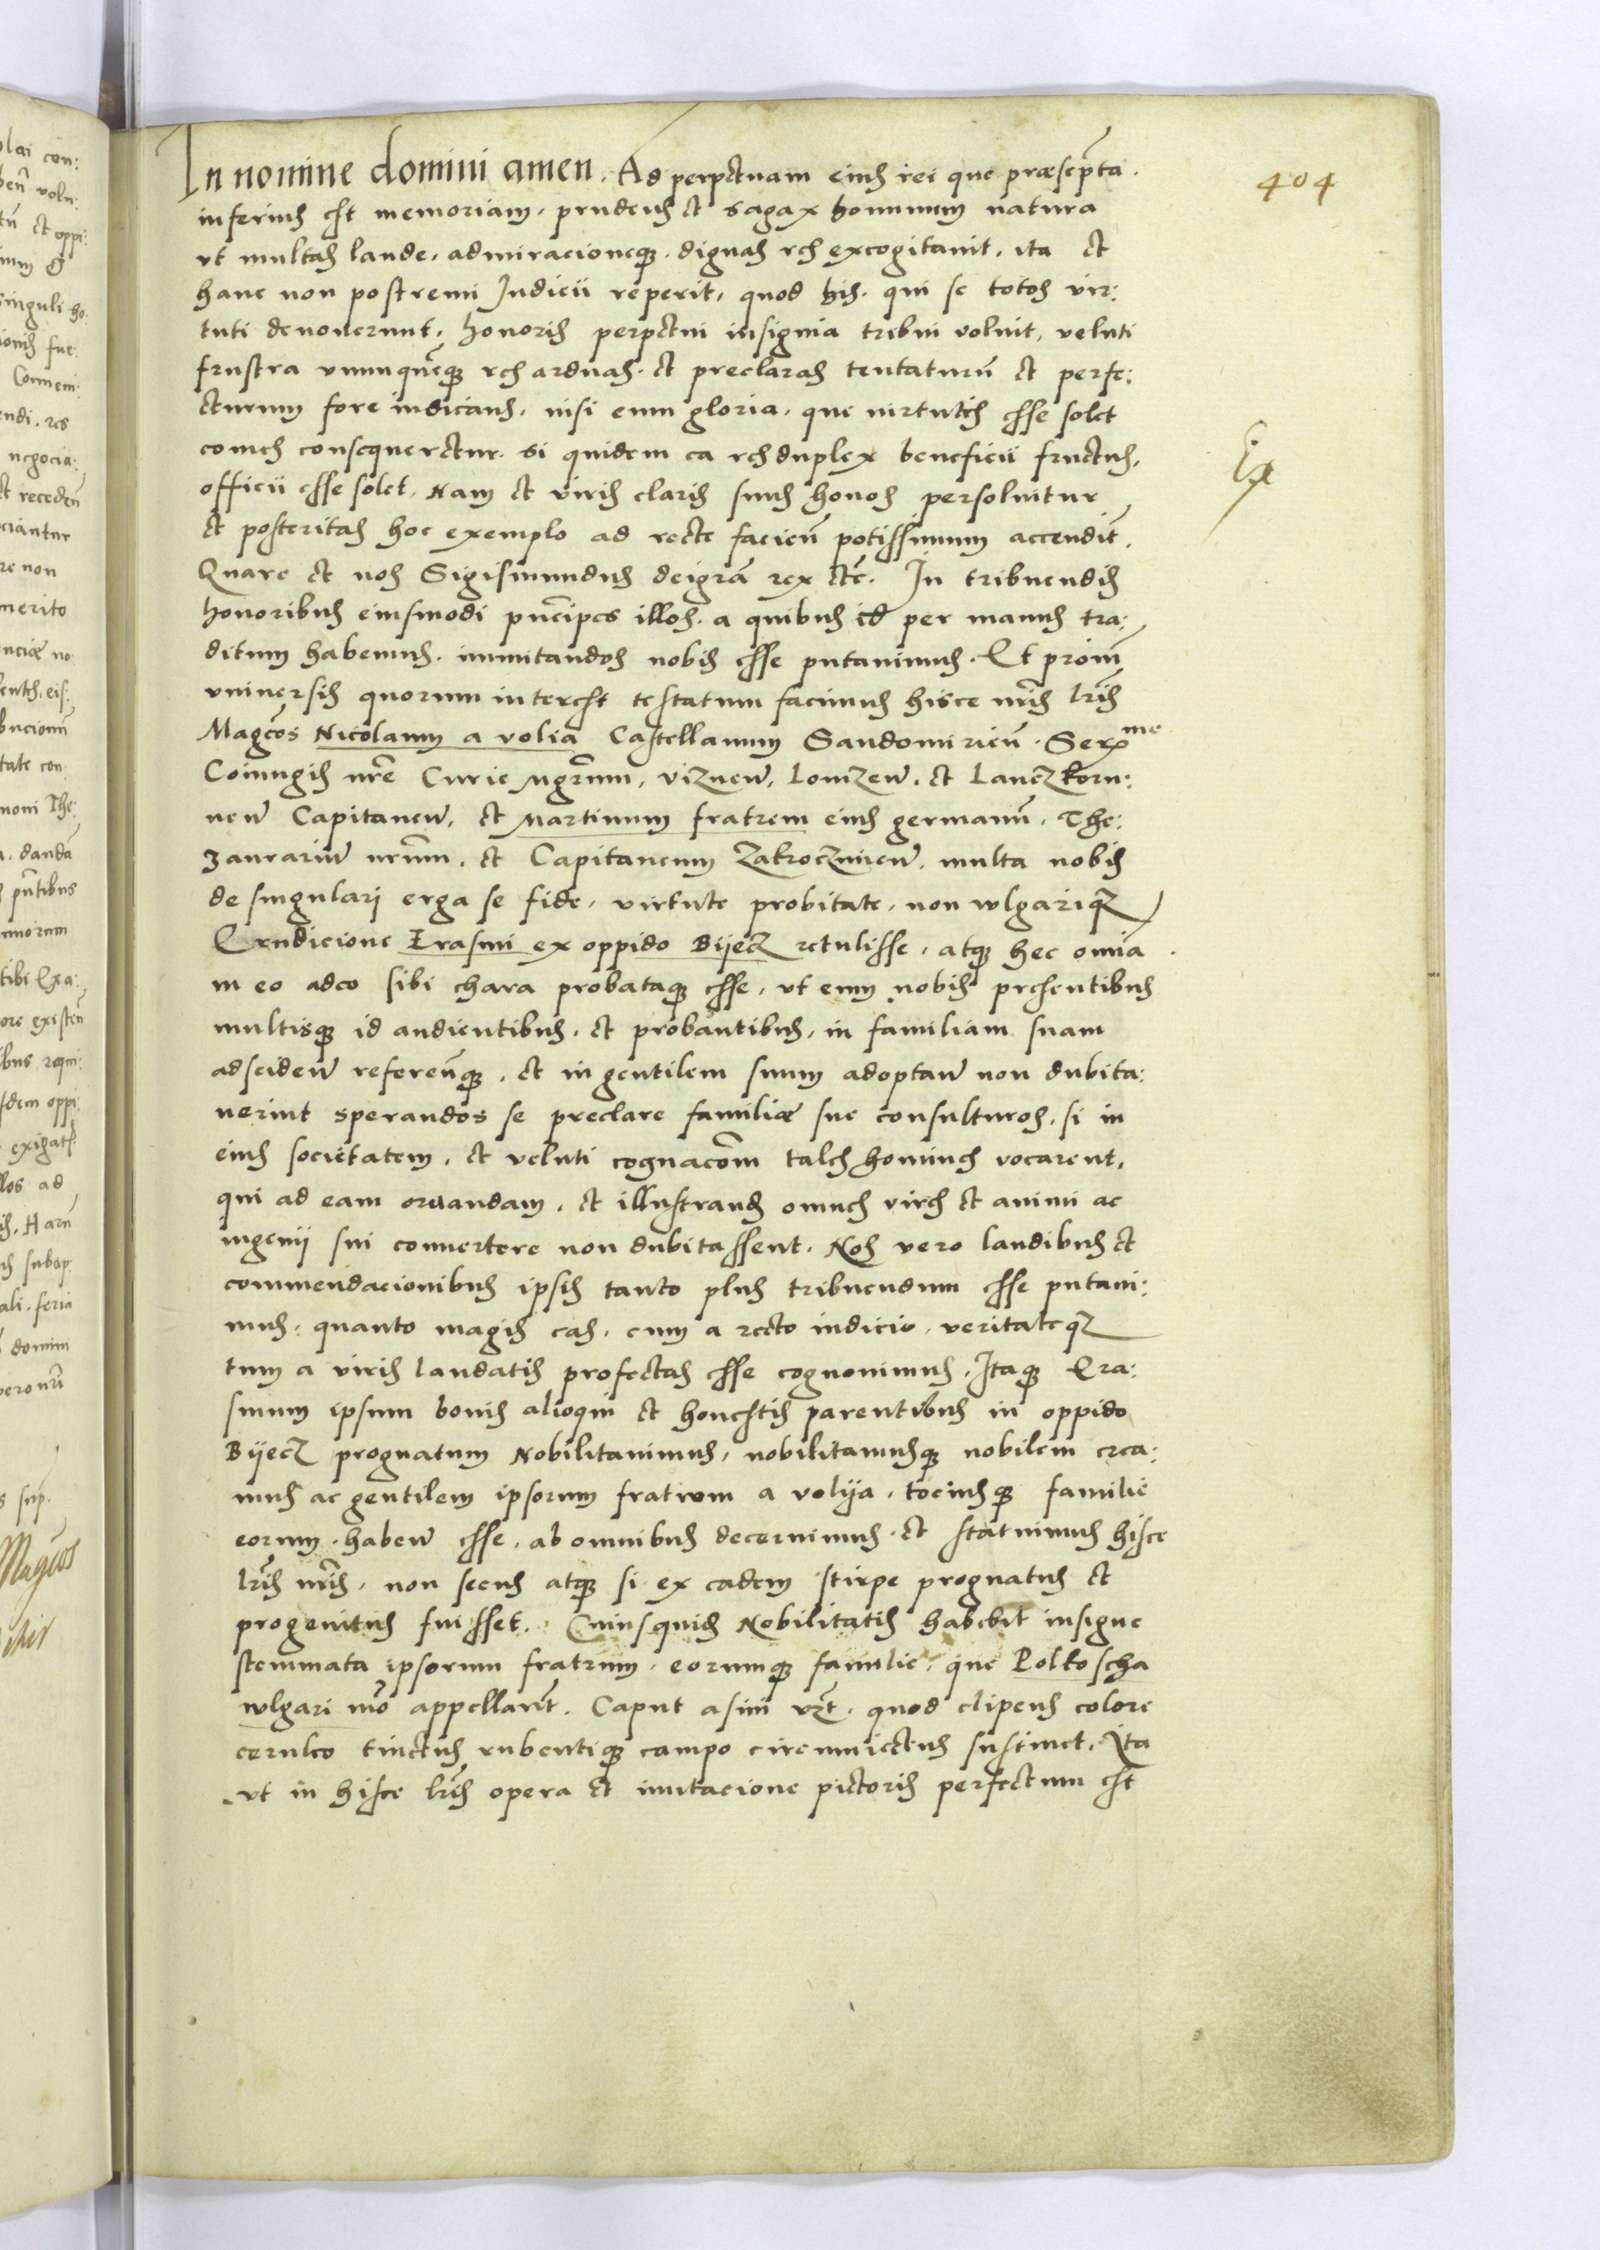 In nomine domini amen. Ad perpetuam eius rei que præscpta
404
inferius est memoriam, prudens et sagax hominum natura
vt multas laude, admiracioneq3 dignas res excogitauit, ita et
hanc non postremi Iudicii reperit, quod his, qui se totos vir:
tuti deuouerunt, honoris perpetui insignia tribui voluit, veluti
frustra vnumquēq3 res arduas et preclaras tentaturū et perfe:
cturum fore iudicans, nisi eum gloria, que uirtutis esse solet
comes consequeretur. Si quidem ea res duplex beneficii fructus,
officii esse solet. Nam et viris claris suus honos persoluitur
et posteritas hoc exemplo ad recte facienđ potissimum accendit̃,
Quare et nos Sigismundus dei grã rex etč. In tribuendis
honoribus eiusmodi pñcipes illos, a quibus id per manus tra:
ditum habemus, immitandos nobis esse putauimus. Et proin̄
vniuersis quorum interest testatum facimus hisce nr̃is lr̃is
Magčos Nicolaum a volia Castellanum Sandomirieñ. Serme
Coiungis nr̃e Curie Mgr̃um, viznen̄, Lomzen̄, et Lanczkoru:
nen̄ Capitaneū, et Martinum fratrem eius germanū, The:
zaurariū nr̃um, et Capitaneum Zakroczimieñ, multa nobis
de singulari erga se fide, virtute probitate, non vlgariq3
Erudicione Erasmi ex oppido Bijecz retulisse, atq3 hec omĩa
in eo adeo sibi chara probataq3 esse, vt eum nobis presentibus
multisq3 id audientibus, et probantibus, in familiam suam
adsciden̄ referenđq3, et in gentilem suum adoptan̄ non dubita:
uerint sperandos se preclare familiæ sue consulturos, si in
eius societatem, et veluti cognacõm tales homines vocarent,
qui ad eam ornandam, et illustranđ omnes vires et animi ac
ingenij sui conuertere non dubitassent. Nos vero laudibus et
commendacionibus ipsis tanto plus tribuendum esse putaui:
mus, quanto magis eas, cum a recto iudicio, veritateq3
tum a viris laudatis profectas esse cognouimus. Itaq3 Era:
smum ipsum bonis alioqui et honestis parentibus in oppido
Bijecz prognatum Nobilitauimus, nobilitamusq3 nobilem crea:
mus ac gentilem ipsorum fratrum a volija, tociusq3 familie
eorum haben̄ esse, ab omnibus decernimus et statuimus hisce
lr̃is nr̃is, non secus atq3 si ex eadem stirpe prognatus et
progenitus fuisset. Cuiusquid Nobilitatis habebit insigne
stemmata ipsorum fratrum, eorumq3 familie, que Polkoscha
vlgari mõ appellant̃. Caput asini vz̃t, quod clipeus colore
ceruleo tinctus rubentiq3 campo circumiectus sustinet, Ita
vt in hisce lr̃is opera et imitacione pictoris perfectum est